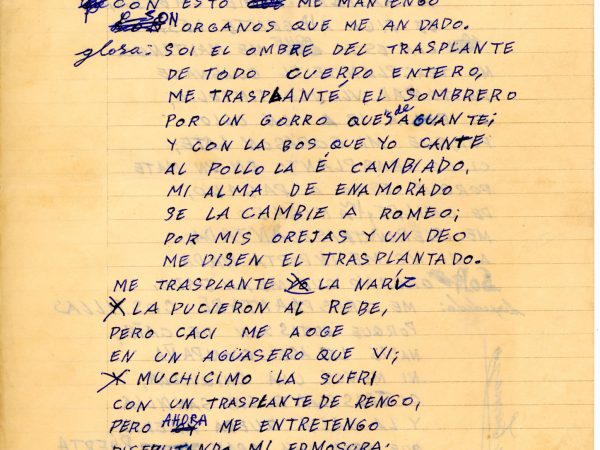 CON ESTO ME MANTENGO
SON ORGANOS QUE ME AN DADO.
glosa: SOI EL OMBRE DEL TRASPLANTE
DE TODO CUERPO ENTERO,
ME TRASPLANTÉ EL SOMBRERO
POR UN GORRO QUE "de" AGUANTE;
Y CON LA BOS QUE YO CANTE
AL POLLO LA É CAMBIADO,
MI ALMA DE ENAMORADO
SE LA CAMBIE A ROMEO;
POR MIS OREJAS Y UN DEO
ME DISEN EL TRASPLANTADO.
ME TRASPLANTE LA NARÍZ
X LA PUCIERON AL REBE,
PERO CACI ME AOGE
EN UN AGUASERO QUE VI;
X MUCHICIMO LA SUFRI
CON UN TRASPLANTE DE RENGO,
PERO AHORA ME ENTRETENGO
DISFRUTANDO MI ERMOSURA;